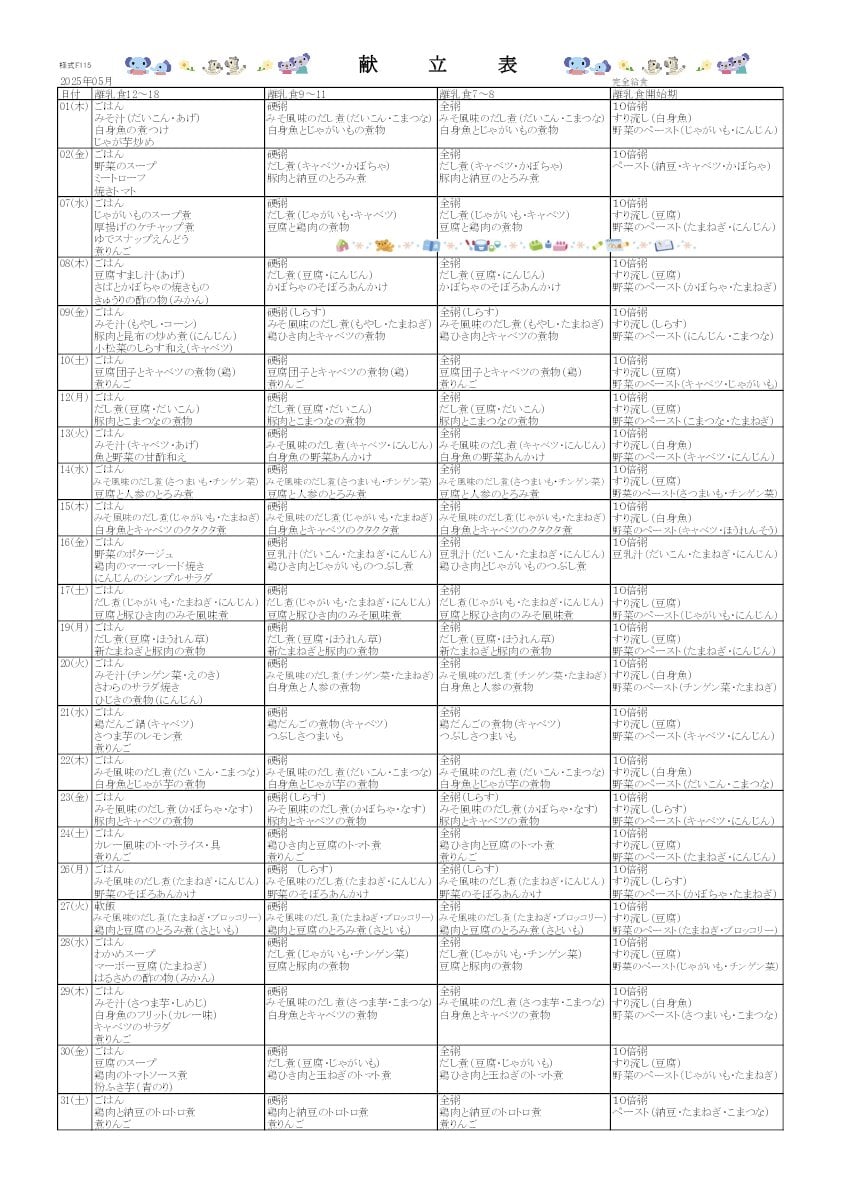 様式F115
献立表
2025年05月
完全給食
日付 離乳食12～18 離乳食9～11 離乳食7～8 離乳食開始期
01(木) ごはん 硬粥 全粥 10倍粥
みそ汁(だいこん・あげ) みそ風味のだし煮(だいこん・こまつな) みそ風味のだし煮(だいこん・こまつな) すり流し(白身魚)
白身魚の煮つけ 白身魚とじゃがいもの煮物 白身魚とじゃがいもの煮物 野菜のペースト(じゃがいも・にんじん)
じゃが芋炒め
02(金) ごはん 硬粥 全粥 10倍粥
野菜のスープ だし煮(キャベツ・かぼちゃ) だし煮(キャベツ・かぼちゃ) ペースト(納豆・キャベツ・かぼちゃ)
ミートローフ 豚肉と納豆のとろみ煮 豚肉と納豆のとろみ煮
焼きトマト
07(水) ごはん 硬粥 全粥 10倍粥
じゃがいものスープ煮 だし煮(じゃがいも・キャベツ) だし煮(じゃがいも・キャベツ) すり流し(豆腐)
厚揚げのケチャップ煮 豆腐と鶏肉の煮物 豆腐と鶏肉の煮物 野菜のペースト(たまねぎ・にんじん)
ゆでスナップえんどう
煮りんご
08(木) ごはん 硬粥 全粥 10倍粥
豆腐すまし汁(あげ) だし煮(豆腐・にんじん) だし煮(豆腐・にんじん) すり流し(豆腐)
さばとかぼちゃの焼きもの かぼちゃのそぼろあんかけ かぼちゃのそぼろあんかけ 野菜のペースト(かぼちゃ・たまねぎ)
きゅうりの酢の物(みかん)
09(金) ごはん 硬粥(しらす) 全粥(しらす) 10倍粥
みそ汁(もやし・コーン) みそ風味のだし煮(もやし・たまねぎ) みそ風味のだし煮(もやし・たまねぎ) すり流し(しらす)
豚肉と昆布の炒め煮(にんじん) 鶏ひき肉とキャベツの煮物 鶏ひき肉とキャベツの煮物 野菜のペースト(にんじん・こまつな)
小松菜のしらす和え(キャベツ)
10(土) ごはん 硬粥 全粥 10倍粥
豆腐団子とキャベツの煮物(鶏) 豆腐団子とキャベツの煮物(鶏) 豆腐団子とキャベツの煮物(鶏) すり流し(豆腐)
煮りんご 煮りんご 煮りんご 野菜のペースト(キャベツ・じゃがいも)
12(月) ごはん 硬粥 全粥 10倍粥
だし煮(豆腐・だいこん) だし煮(豆腐・だいこん) だし煮(豆腐・だいこん) すり流し(豆腐)
豚肉とこまつなの煮物 豚肉とこまつなの煮物 豚肉とこまつなの煮物 野菜のペースト(こまつな・たまねぎ)
13(火) ごはん 硬粥 全粥 10倍粥
みそ汁(キャベツ・あげ) みそ風味のだし煮(キャベツ・にんじん) みそ風味のだし煮(キャベツ・にんじん) すり流し(白身魚)
魚と野菜の甘酢和え 白身魚の野菜あんかけ 白身魚の野菜あんかけ 野菜のペースト(キャベツ・にんじん)
14(水) ごはん 硬粥 全粥 10倍粥
みそ風味のだし煮(さつまいも・チンゲン菜) みそ風味のだし煮(さつまいも・チンゲン菜) みそ風味のだし煮(さつまいも・チンゲン菜) すり流し(豆腐)
豆腐と人参のとろみ煮 豆腐と人参のとろみ煮 豆腐と人参のとろみ煮 野菜のペースト(さつまいも・チンゲン菜)
15(木) ごはん 硬粥 全粥 10倍粥
みそ風味のだし煮(じゃがいも・たまねぎ) みそ風味のだし煮(じゃがいも・たまねぎ) みそ風味のだし煮(じゃがいも・たまねぎ) すり流し(白身魚)
白身魚とキャベツのクタクタ煮 白身魚とキャベツのクタクタ煮 白身魚とキャベツのクタクタ煮 野菜のペースト(キャベツ・ほうれんそう)
16(金) ごはん 硬粥 全粥 10倍粥
野菜のポタージュ 豆乳汁(だいこん・たまねぎ・にんじん) 豆乳汁(だいこん・たまねぎ・にんじん) 豆乳汁(だいこん・たまねぎ・にんじん)
鶏肉のマーマレード焼き 鶏ひき肉とじゃがいものつぶし煮 鶏ひき肉とじゃがいものつぶし煮
にんじんのシンプルサラダ
17(土) ごはん 硬粥 全粥 10倍粥
だし煮(じゃがいも・たまねぎ・にんじん) だし煮(じゃがいも・たまねぎ・にんじん) だし煮(じゃがいも・たまねぎ・にんじん) すり流し(豆腐)
豆腐と豚ひき肉のみそ風味煮 豆腐と豚ひき肉のみそ風味煮 豆腐と豚ひき肉のみそ風味煮 野菜のペースト(じゃがいも・にんじん)
19(月) ごはん 硬粥 全粥 10倍粥
だし煮(豆腐・ほうれん草) だし煮(豆腐・ほうれん草) だし煮(豆腐・ほうれん草) すり流し(豆腐)
新たまねぎと豚肉の煮物 新たまねぎと豚肉の煮物 新たまねぎと豚肉の煮物 野菜のペースト(たまねぎ・にんじん)
20(火) ごはん 硬粥 全粥 10倍粥
みそ汁(チンゲン菜・えのき) みそ風味のだし煮(チンゲン菜・たまねぎ) みそ風味のだし煮(チンゲン菜・たまねぎ) すり流し(白身魚)
さわらのサラダ焼き 白身魚と人参の煮物 白身魚と人参の煮物 野菜のペースト(チンゲン菜・たまねぎ)
ひじきの煮物(にんじん)
21(水) ごはん 硬粥 全粥 10倍粥
鶏だんご鍋(キャベツ) 鶏だんごの煮物(キャベツ) 鶏だんごの煮物(キャベツ) すり流し(豆腐)
さつま芋のレモン煮 つぶしさつまいも つぶしさつまいも 野菜のペースト(キャベツ・にんじん)
煮りんご
22(木) ごはん 硬粥 全粥 10倍粥
みそ風味のだし煮(だいこん・こまつな) みそ風味のだし煮(だいこん・こまつな) みそ風味のだし煮(だいこん・こまつな) すり流し(白身魚)
白身魚とじゃが芋の煮物 白身魚とじゃが芋の煮物 白身魚とじゃが芋の煮物 野菜のペースト(だいこん・こまつな)
23(金) ごはん 硬粥(しらす) 全粥(しらす) 10倍粥
みそ風味のだし煮(かぼちゃ・なす) みそ風味のだし煮(かぼちゃ・なす) みそ風味のだし煮(かぼちゃ・なす) すり流し(しらす)
豚肉とキャベツの煮物 豚肉とキャベツの煮物 豚肉とキャベツの煮物 野菜のペースト(キャベツ・にんじん)
24(土) ごはん 硬粥 全粥 10倍粥
カレー風味のトマトライス・具 鶏ひき肉と豆腐のトマト煮 鶏ひき肉と豆腐のトマト煮 すり流し(豆腐)
煮りんご 煮りんご 煮りんご 野菜のペースト(たまねぎ・にんじん)
26(月) ごはん 硬粥 (しらす) 全粥(しらす) 10倍粥
みそ風味のだし煮(たまねぎ・にんじん) みそ風味のだし煮(たまねぎ・にんじん) みそ風味のだし煮(たまねぎ・にんじん) すり流し(しらす)
野菜のそぼろあんかけ 野菜のそぼろあんかけ 野菜のそぼろあんかけ 野菜のペースト(かぼちゃ・たまねぎ)
27(火) 軟飯 硬粥 全粥 10倍粥
みそ風味のだし煮(たまねぎ・ブロッコリー) みそ風味のだし煮(たまねぎ・ブロッコリー) みそ風味のだし煮(たまねぎ・ブロッコリー) すり流し(豆腐)
鶏肉と豆腐のとろみ煮(さといも) 鶏肉と豆腐のとろみ煮(さといも) 鶏肉と豆腐のとろみ煮(さといも) 野菜のペースト(たまねぎ・ブロッコリー)
28(水) ごはん 硬粥 全粥 10倍粥
わかめスープ だし煮(じゃがいも・チンゲン菜) だし煮(じゃがいも・チンゲン菜) すり流し(豆腐)
マーボー豆腐(たまねぎ) 豆腐と豚肉の煮物 豆腐と豚肉の煮物 野菜のペースト(じゃがいも・チンゲン菜)
はるさめの酢の物(みかん)
29(木) ごはん 硬粥 全粥 10倍粥
みそ汁(さつま芋・しめじ) みそ風味のだし煮(さつま芋・こまつな) みそ風味のだし煮(さつま芋・こまつな) すり流し(白身魚)
白身魚のフリット(カレー味) 白身魚とキャベツの煮物 白身魚とキャベツの煮物 野菜のペースト(さつまいも・こまつな)
キャベツのサラダ
煮りんご
30(金) ごはん 硬粥 全粥 10倍粥
豆腐のスープ だし煮(豆腐・じゃがいも) だし煮(豆腐・じゃがいも) すり流し(豆腐)
鶏肉のトマトソース煮 鶏ひき肉と玉ねぎのトマト煮 鶏ひき肉と玉ねぎのトマト煮 野菜のペースト(じゃがいも・たまねぎ)
粉ふき芋(青のり)
31(土) ごはん 硬粥 全粥 10倍粥
鶏肉と納豆のトロトロ煮 鶏肉と納豆のトロトロ煮 鶏肉と納豆のトロトロ煮 ペースト(納豆・たまねぎ・こまつな)
煮りんご 煮りんご 煮りんご